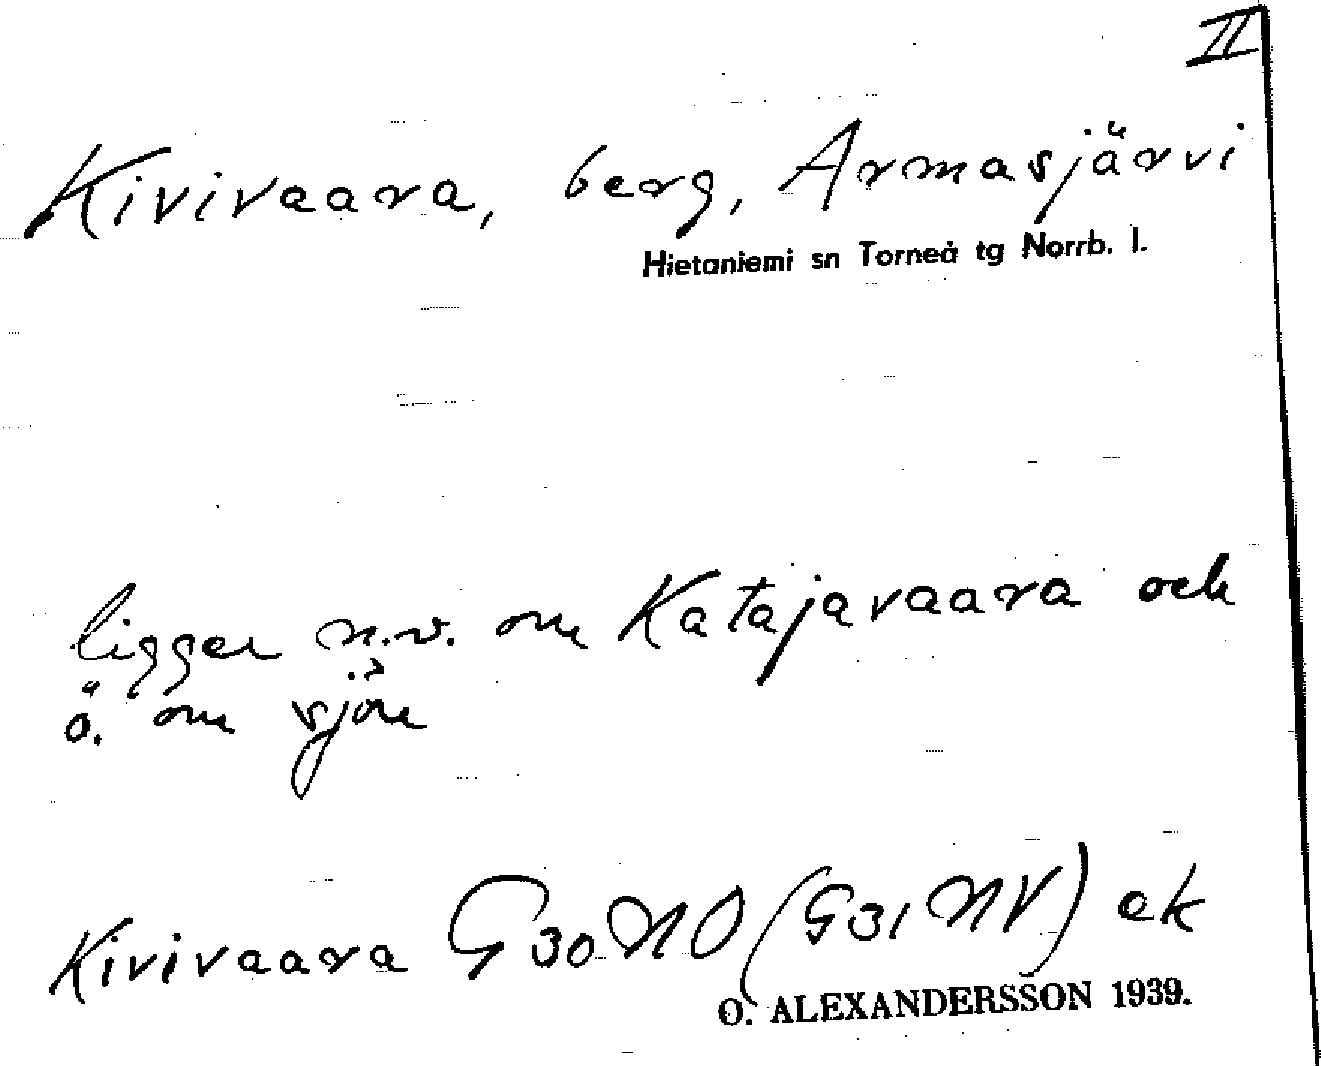 II
Kivivaara, berg, Armasjärvi
Hietaniemi sn Torneå tg Norrb. l.
ligger n.v. om Katajavaara och
ö. om sjön
Kivivaara G30NO (G31NV) ek
O. ALEXANDERSSON 1939.